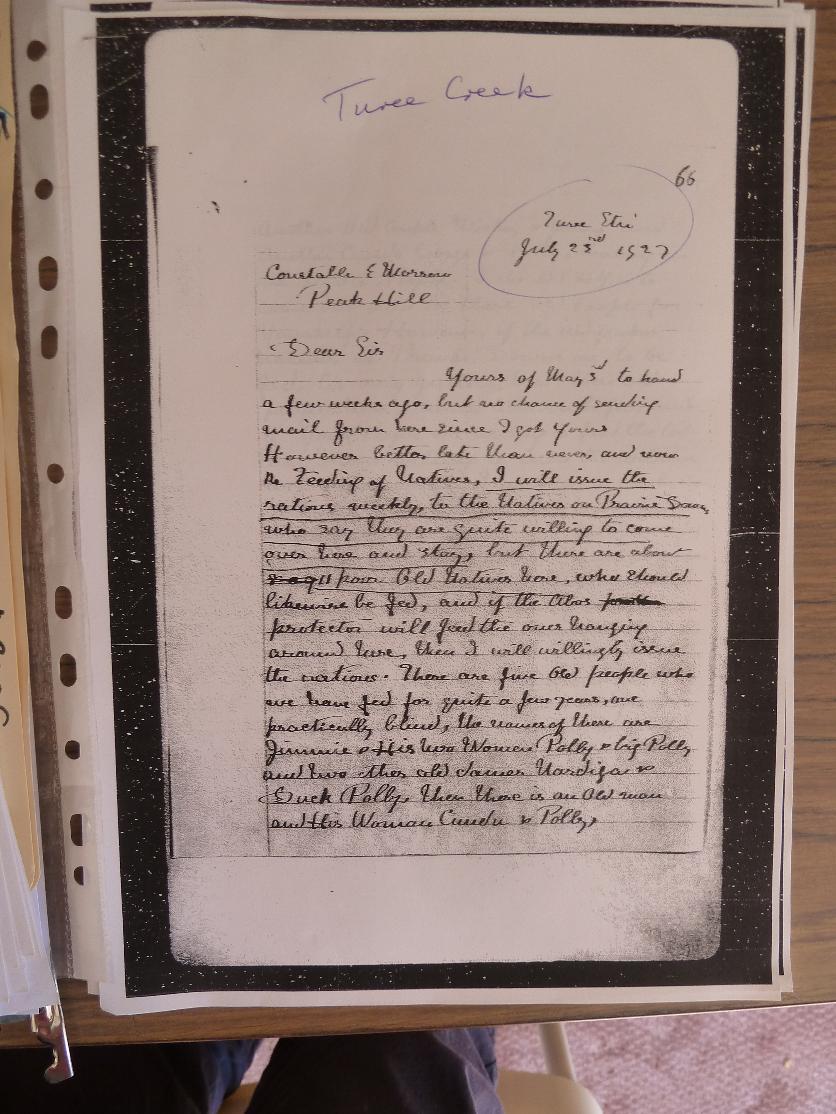 Turee Creek
66
Turee Stn
July 23rd 1927
Constable E Morrow
Peak Hill
Dear Sir
Yours of May 3rd to hand
a few weeks ago, but no chance of sending
mail from here since I got yours
However better late than never, and now
Re Feeding of Natives, I will issue the
rations weekly, to the Natives on Prairie Downs,
who say they are quite willing to come
over here and stay, but there are about
poor Old Natives here, who should
likewise be fed, and if the Abos
protector will feed the ones hanging
around here, then I will willingly issue
the rations. There are five Old people who
we have fed for quite a few years, are
practically blind, the names of these are
Jimmie & His two Women Polly & big Polly
and two other old dames &
Duck Polly, then there is an Old man
and His Woman & Polly,